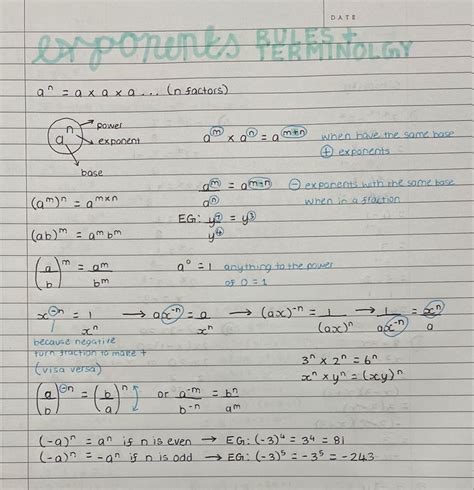 DATE
exponents RULES + TERMINOLGY
aⁿ = a x a x a ... (n factors)
aⁿ
power
exponent
base
aᵐ x aⁿ = aᵐ⁺ⁿ
when have the same base
+ exponents
(aᵐ)ⁿ = aᵐˣⁿ
aᵐ/aⁿ = aᵐ⁻ⁿ
− exponents with the same base
when in a fraction
EG: y⁷/y⁴ = y³
(ab)ᵐ = aᵐbᵐ
(a/b)ᵐ = aᵐ/bᵐ
a⁰ = 1 anything to the power
of 0 = 1
x⁻ⁿ = 1/xⁿ → ax⁻ⁿ = a/xⁿ → (ax)⁻ⁿ = 1/(ax)ⁿ → 1/ax⁻ⁿ = xⁿ/a
because negative
turn fraction to make +
(visa versa)
3ⁿ x 2ⁿ = 6ⁿ
xⁿ x yⁿ = (xy)ⁿ
(a/b)⁻ⁿ = (b/a)ⁿ or a⁻ᵐ/b⁻ⁿ = bⁿ/aᵐ
(-a)ⁿ = aⁿ if n is even → EG: (-3)⁴ = 3⁴ = 81
(-a)ⁿ = -aⁿ if n is odd → EG: (-3)⁵ = -3⁵ = -243